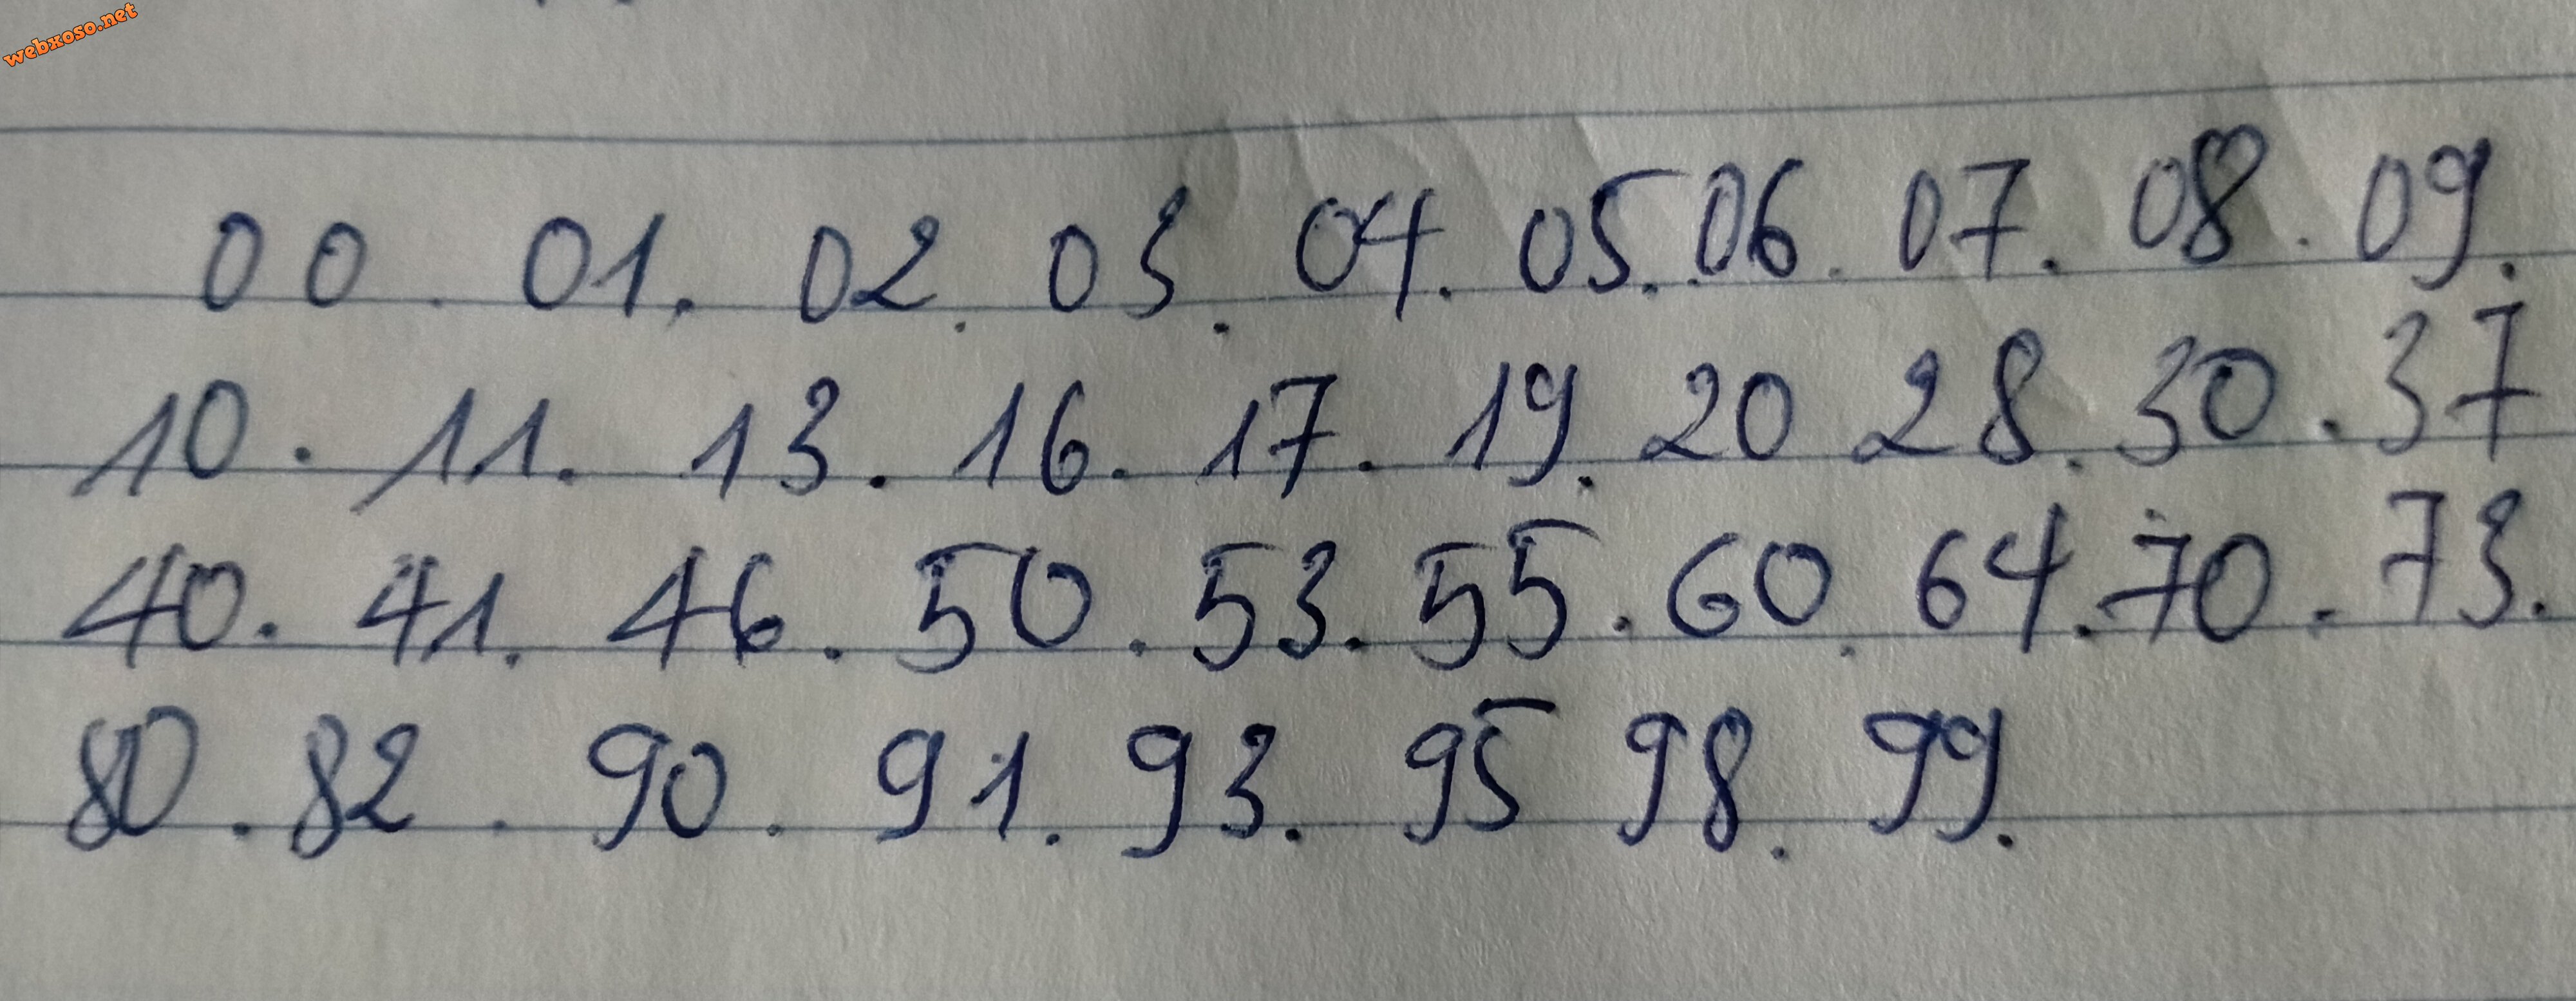 webxoso.net
00. 01. 02. 03. 04. 05. 06. 07. 08. 09.
10. 11. 13. 16. 17. 19. 20 28. 30. 37
40. 41. 46. 50. 53. 55. 60. 64. 70. 73.
80. 82. 90. 91. 93. 95 98. 99.